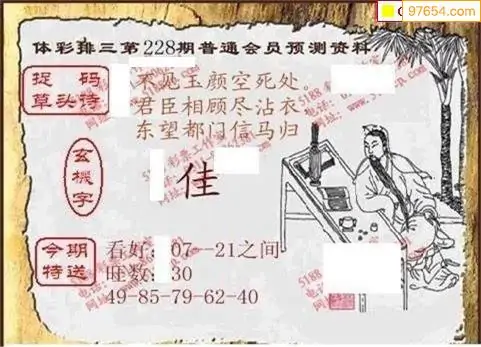 97654.com
体彩排三第228期普通会员预测资料
捉码
草头诗
不见玉颜空死处。
君臣相顾尽沾衣
东望都门信马归
玄機字
佳
今期
特送
看好：07--21之间
旺数：30
49-85-79-62-40